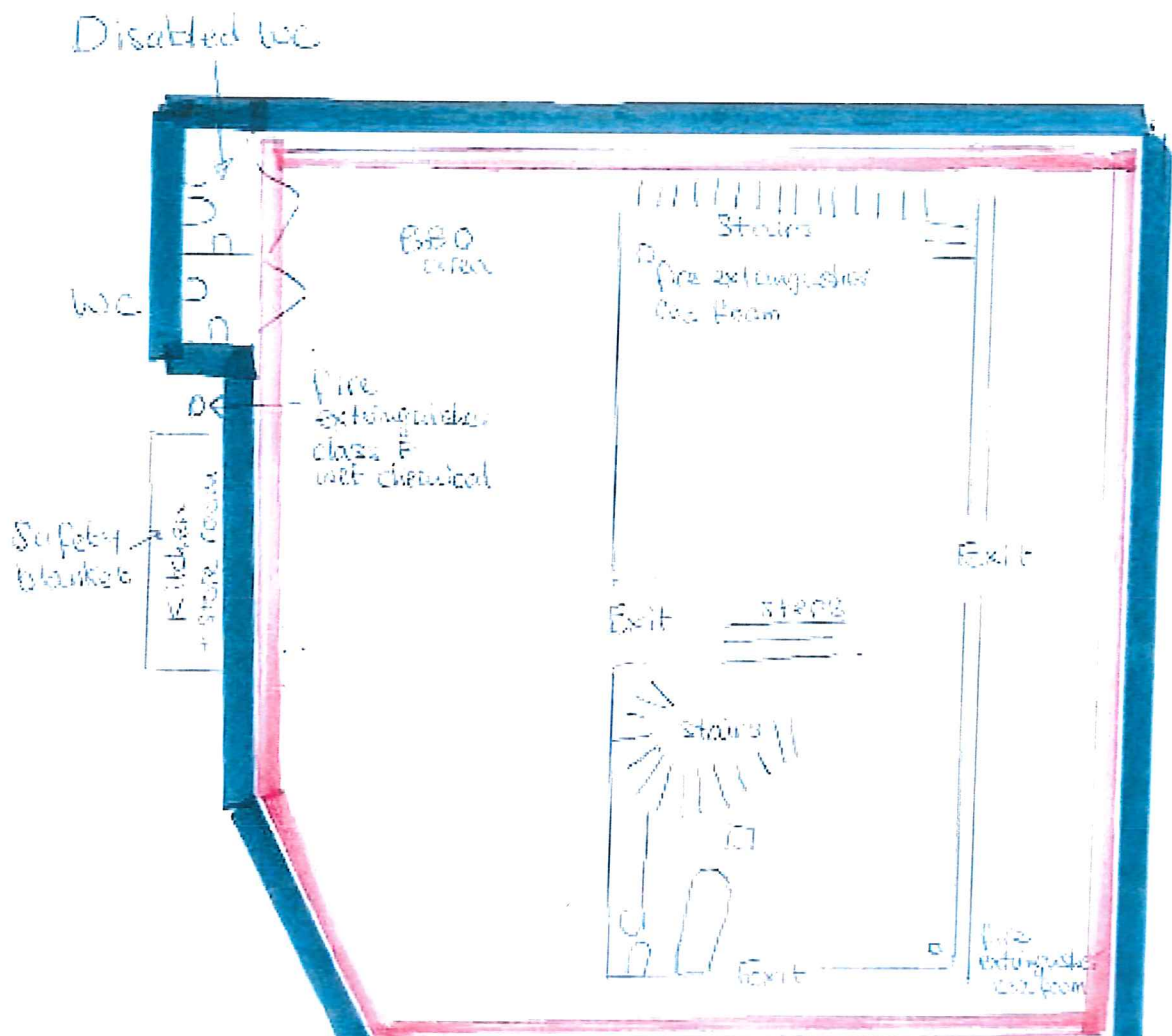 Disabled WC
BBQ
area
Stairs
fire extinguisher
foam
WC
fire
extinguisher
class F
wet chemical
Safety
blanket
Kitchen
+ STORE ROOM
Exit
Exit
steps
stairs
Exit
fire
extinguisher
foam